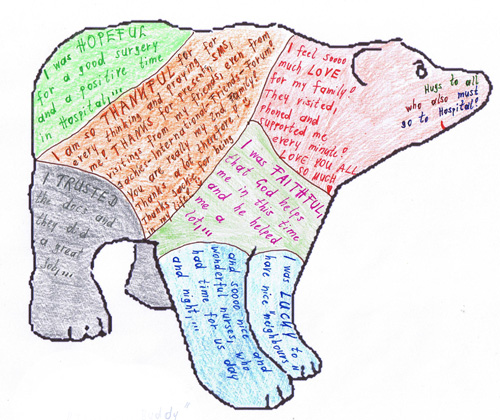 I was HOPEFUL
for a good surgery
and a positive time
in Hospital,,,,
I am so THANKFUL for
every thinking and praying for
me! THANKS for presents, SMS,
visiting from my friends, even from
Friends Forum!
You are really my 2nd family!
Thanks a lot therefore!
Thanks for being
in my life!
I feel soooo
much LOVE
for my family!
They visited,
phoned and
supported me
every minute!
LOVE YOU ALL
SO MUCH
Hugs to all
who also must
go to Hospital!
I TRUSTED
the docs and
they did
a great
lot,,,,
I was FAITHFUL,
that God helps
me in this time
and he helped
me a
lot,,,,
I was LUCKY to
have nice "neighbours"
and soooo nice and
wonderful nurses, who
had time for us day
and night,,,,